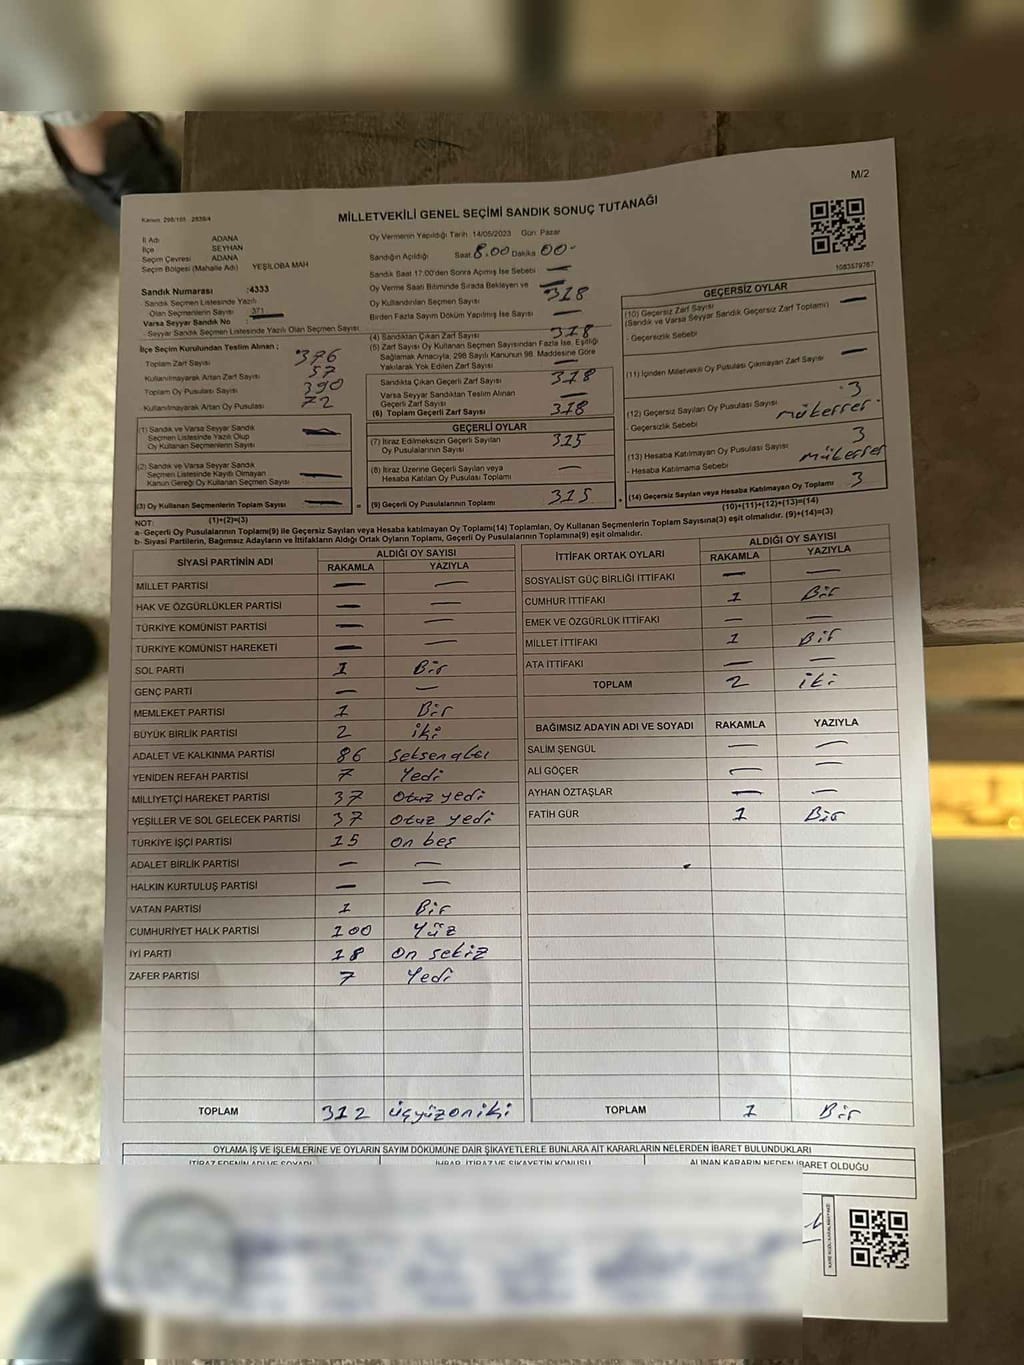 M/2
Kanun: 298/105 2839/4
MİLLETVEKİLİ GENEL SEÇİMİ SANDIK SONUÇ TUTANAĞI
İl Adı ADANA
İlçe SEYHAN
Seçim Çevresi ADANA
Seçim Bölgesi (Mahalle Adı) YEŞİLOBA MAH
Sandık Numarası :4333
Sandık Seçmen Listesinde Yazılı
Olan Seçmenlerin Sayısı 371
Varsa Seyyar Sandık No :
- Seyyar Sandık Seçmen Listesinde Yazılı Olan Seçmen Sayısı
İlçe Seçim Kurulundan Teslim Alınan ;
Toplam Zarf Sayısı 376
Kullanılmayarak Artan Zarf Sayısı 57
Toplam Oy Pusulası Sayısı 390
Kullanılmayarak Artan Oy Pusulası 72
(1) Sandık ve Varsa Seyyar Sandık
Seçmen Listesinde Yazılı Olup
Oy Kullanan Seçmenlerin Sayısı —
(2) Sandık ve Varsa Seyyar Sandık
Seçmen Listesinde Kayıtlı Olmayan
Kanun Gereği Oy Kullanan Seçmen Sayısı —
(3) Oy Kullanan Seçmenlerin Toplam Sayısı —
(1)+(2)=(3)
Oy Vermenin Yapıldığı Tarih :14/05/2023 Gün: Pazar
Sandığın Açıldığı Saat 8.00 Dakika 00
Sandık Saat 17:00'den Sonra Açılmış İse Sebebi —
Oy Verme Saati Bitiminde Sırada Bekleyen ve
Oy Kullandırılan Seçmen Sayısı 318
Birden Fazla Sayım Döküm Yapılmış İse Sayısı —
(4) Sandıktan Çıkan Zarf Sayısı 318
(5) Zarf Sayısı Oy Kullanan Seçmen Sayısından Fazla İse, Eşitliği
Sağlamak Amacıyla, 298 Sayılı Kanunun 98. Maddesine Göre
Yakılarak Yok Edilen Zarf Sayısı —
Sandıkta Çıkan Geçerli Zarf Sayısı 318
Varsa Seyyar Sandıktan Teslim Alınan
Geçerli Zarf Sayısı —
(6) Toplam Geçerli Zarf Sayısı 318
GEÇERLİ OYLAR
(7) İtiraz Edilmeksizin Geçerli Sayılan
Oy Pusulalarının Sayısı 315
(8) İtiraz Üzerine Geçerli Sayılan veya
Hesaba Katılan Oy Pusulası Toplamı —
(9) Geçerli Oy Pusulalarının Toplamı 315
1083579767
GEÇERSİZ OYLAR
(10) Geçersiz Zarf Sayısı
(Sandık ve Varsa Seyyar Sandık Geçersiz Zarf Toplamı) —
- Geçersizlik Sebebi
(11) İçinden Milletvekili Oy Pusulası Çıkmayan Zarf Sayısı —
(12) Geçersiz Sayılan Oy Pusulası Sayısı 3
- Geçersizlik Sebebi mükerrer
(13) Hesaba Katılmayan Oy Pusulası Sayısı 3
- Hesaba Katılmama Sebebi mükerrer
(14) Geçersiz Sayılan veya Hesaba Katılmayan Oy Toplamı 3
(10)+(11)+(12)+(13)=(14)
NOT:
a- Geçerli Oy Pusulalarının Toplamı(9) ile Geçersiz Sayılan veya Hesaba katılmayan Oy Toplamı(14) Toplamları, Oy Kullanan Seçmenlerin Toplam Sayısına(3) eşit olmalıdır. (9)+(14)=(3)
b- Siyasi Partilerin, Bağımsız Adayların ve İttifakların Aldığı Ortak Oyların Toplamı, Geçerli Oy Pusulalarının Toplamına(9) eşit olmalıdır.
SİYASİ PARTİNİN ADI ALDIĞI OY SAYISI
RAKAMLA YAZIYLA
MİLLET PARTİSİ — —
HAK VE ÖZGÜRLÜKLER PARTİSİ — —
TÜRKİYE KOMÜNİST PARTİSİ — —
TÜRKİYE KOMÜNİST HAREKETİ — —
SOL PARTİ 1 Bir
GENÇ PARTİ — —
MEMLEKET PARTİSİ 1 Bir
BÜYÜK BİRLİK PARTİSİ 2 iki
ADALET VE KALKINMA PARTİSİ 86 seksenaltı
YENİDEN REFAH PARTİSİ 7 Yedi
MİLLİYETÇİ HAREKET PARTİSİ 37 Otuz yedi
YEŞİLLER VE SOL GELECEK PARTİSİ 37 Otuz yedi
TÜRKİYE İŞÇİ PARTİSİ 15 on beş
ADALET BİRLİK PARTİSİ — —
HALKIN KURTULUŞ PARTİSİ — —
VATAN PARTİSİ 1 Bir
CUMHURİYET HALK PARTİSİ 100 Yüz
İYİ PARTİ 18 on sekiz
ZAFER PARTİSİ 7 Yedi
TOPLAM 312 üçyüzoniki
İTTİFAK ORTAK OYLARI ALDIĞI OY SAYISI
RAKAMLA YAZIYLA
SOSYALİST GÜÇ BİRLİĞİ İTTİFAKI — —
CUMHUR İTTİFAKI 1 Bir
EMEK VE ÖZGÜRLÜK İTTİFAKI — —
MİLLET İTTİFAKI 1 Bir
ATA İTTİFAKI — —
TOPLAM 2 iki
BAĞIMSIZ ADAYIN ADI VE SOYADI RAKAMLA YAZIYLA
SALİM ŞENGÜL — —
ALİ GÖÇER — —
AYHAN ÖZTAŞLAR — —
FATİH GÜR 1 Bir
TOPLAM 1 Bir
OYLAMA İŞ VE İŞLEMLERİNE VE OYLARIN SAYIM DÖKÜMÜNE DAİR ŞİKAYETLERLE BUNLARA AİT KARARLARIN NELERDEN İBARET BULUNDUKLARI
İTİRAZ EDENİN ADI VE SOYADI İHBAR, İTİRAZ VE ŞİKAYETİN KONUSU ALINAN KARARIN NEDEN İBARET OLDUĞU